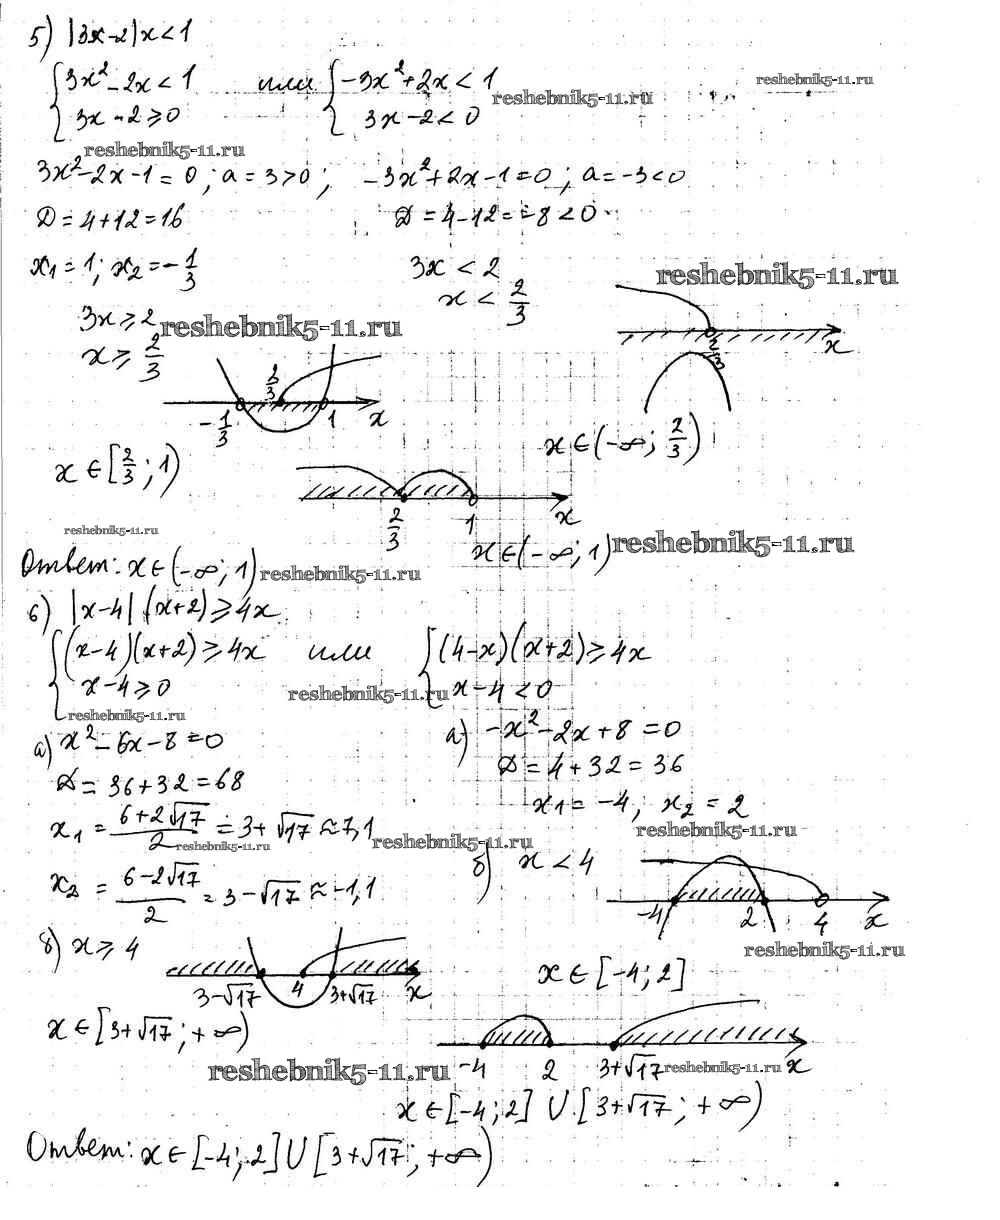 5) |3x-2|x<1
{3x²-2x<1 или {-3x²+2x<1
reshebnik5-11.ru
reshebnik5-11.ru
3x-2≥0 3x-2<0
reshebnik5-11.ru
3x²-2x-1=0; a=3>0; -3x²+2x-1=0; a=-3<0
D=4+12=16 D=4-12=-8<0
x₁=1; x₂=-1/3 3x<2
reshebnik5-11.ru
x<2/3
3x≥2
reshebnik5-11.ru
x≥2/3
2/3 x
2/3
-1/3 1 x
x∈(-∞; 2/3)
x∈[2/3; 1)
2/3 1 x
reshebnik5-11.ru
x∈(-∞; 1)
reshebnik5-11.ru
Ответ: x∈(-∞; 1)
reshebnik5-11.ru
6) |x-4|(x+2)≥4x
{(x-4)(x+2)≥4x или {(4-x)(x+2)≥4x
x-4≥0 x-4<0
reshebnik5-11.ru
reshebnik5-11.ru
а) x²-6x-8=0 а) -x²-2x+8=0
D=36+32=68 D=4+32=36
x₁=-4; x₂=2
x₁=(6+2√17)/2=3+√17≈7,1
reshebnik5-11.ru
reshebnik5-11.ru
reshebnik5-11.ru
x₂=(6-2√17)/2=3-√17≈-1,1 б) x<4
-4 2 4 x
б) x≥4
reshebnik5-11.ru
3-√17 4 3+√17 x
x∈[-4; 2]
x∈[3+√17; +∞)
-4 2 3+√17 x
reshebnik5-11.ru
reshebnik5-11.ru
x∈[-4; 2] ∪ [3+√17; +∞)
Ответ: x∈[-4; 2]∪[3+√17; +∞)